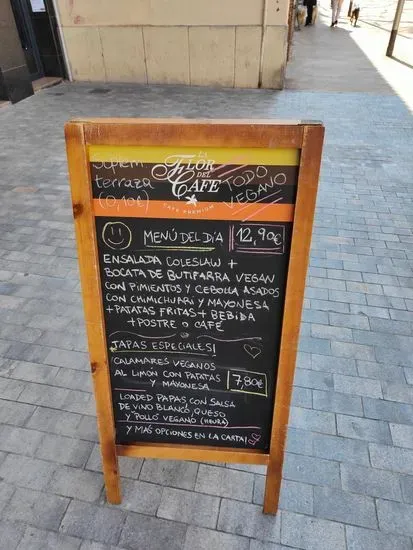 Suplem.
terraza
(0,10€)
LA
FLOR
DEL
CAFÉ
CAFÉ PREMIUM
TODO
VEGANO
MENÚ DEL DÍA 12,90€
ENSALADA COLESLAW +
BOCATA DE BUTIFARRA VEGAN
CON PIMIENTOS Y CEBOLLA ASADOS
CON CHIMICHURI Y MAYONESA
+ PATATAS FRITAS + BEBIDA
+ POSTRE O CAFÉ
¡TAPAS ESPECIALES!
CALAMARES VEGANOS
AL LIMÓN CON PATATAS
Y MAYONESA 7,80€
LOADED PAPAS CON SALSA
DE VINO BLANCO, QUESO
Y POLLO VEGANO (HEURA)
Y MÁS OPCIONES EN LA CARTA!